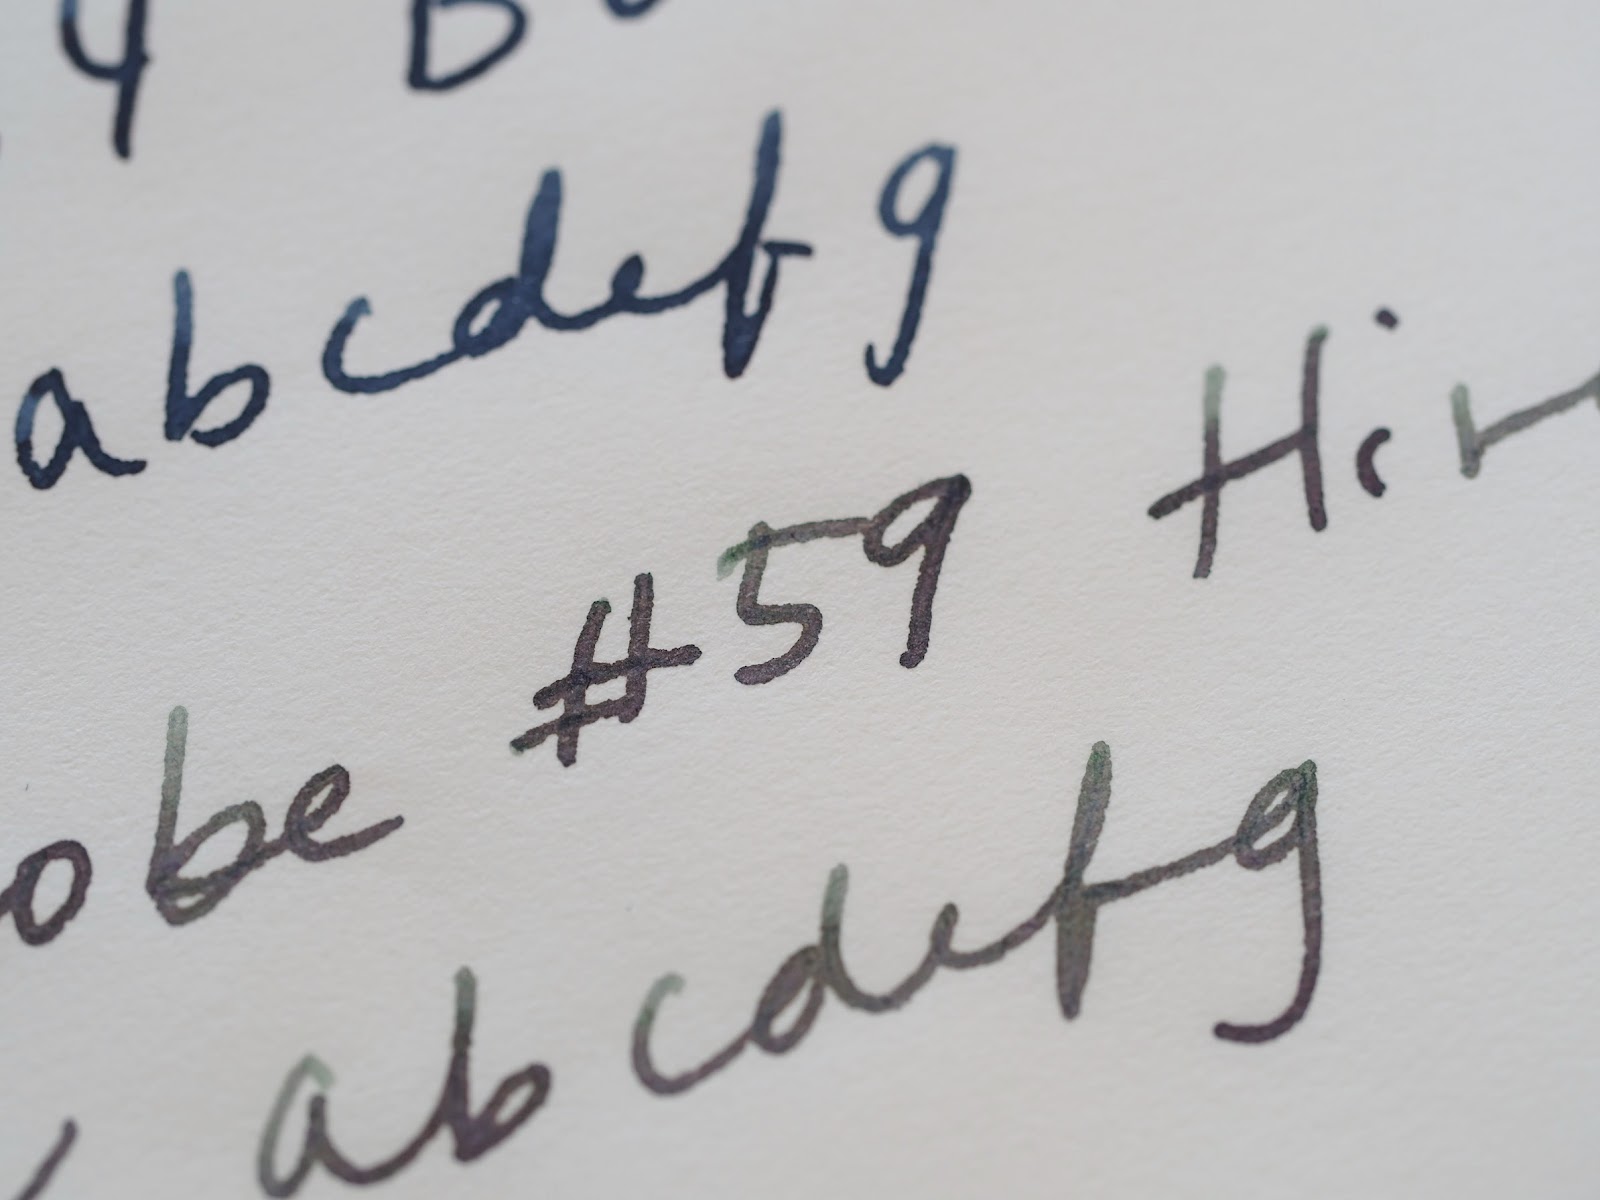 4 B
abcdefg
obe #59 Hi
abcdefg